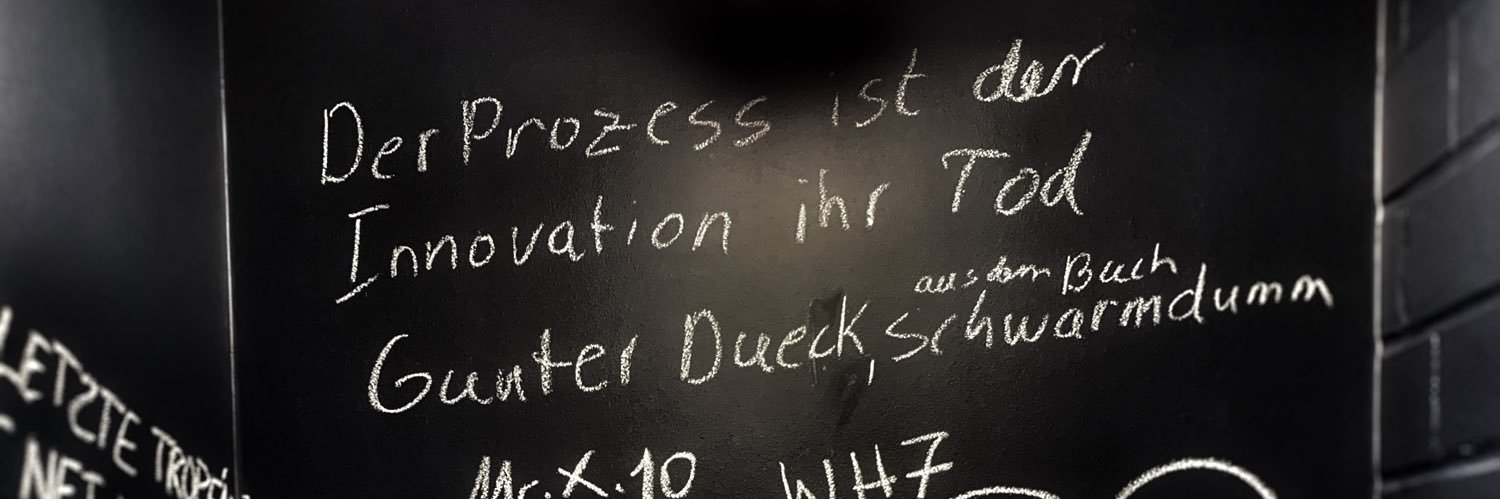 Der Prozess ist der
Innovation ihr Tod
aus dem Buch
Gunter Dueck, Schwarmdumm
Mr.X.10 WH7
LETZTE
NET